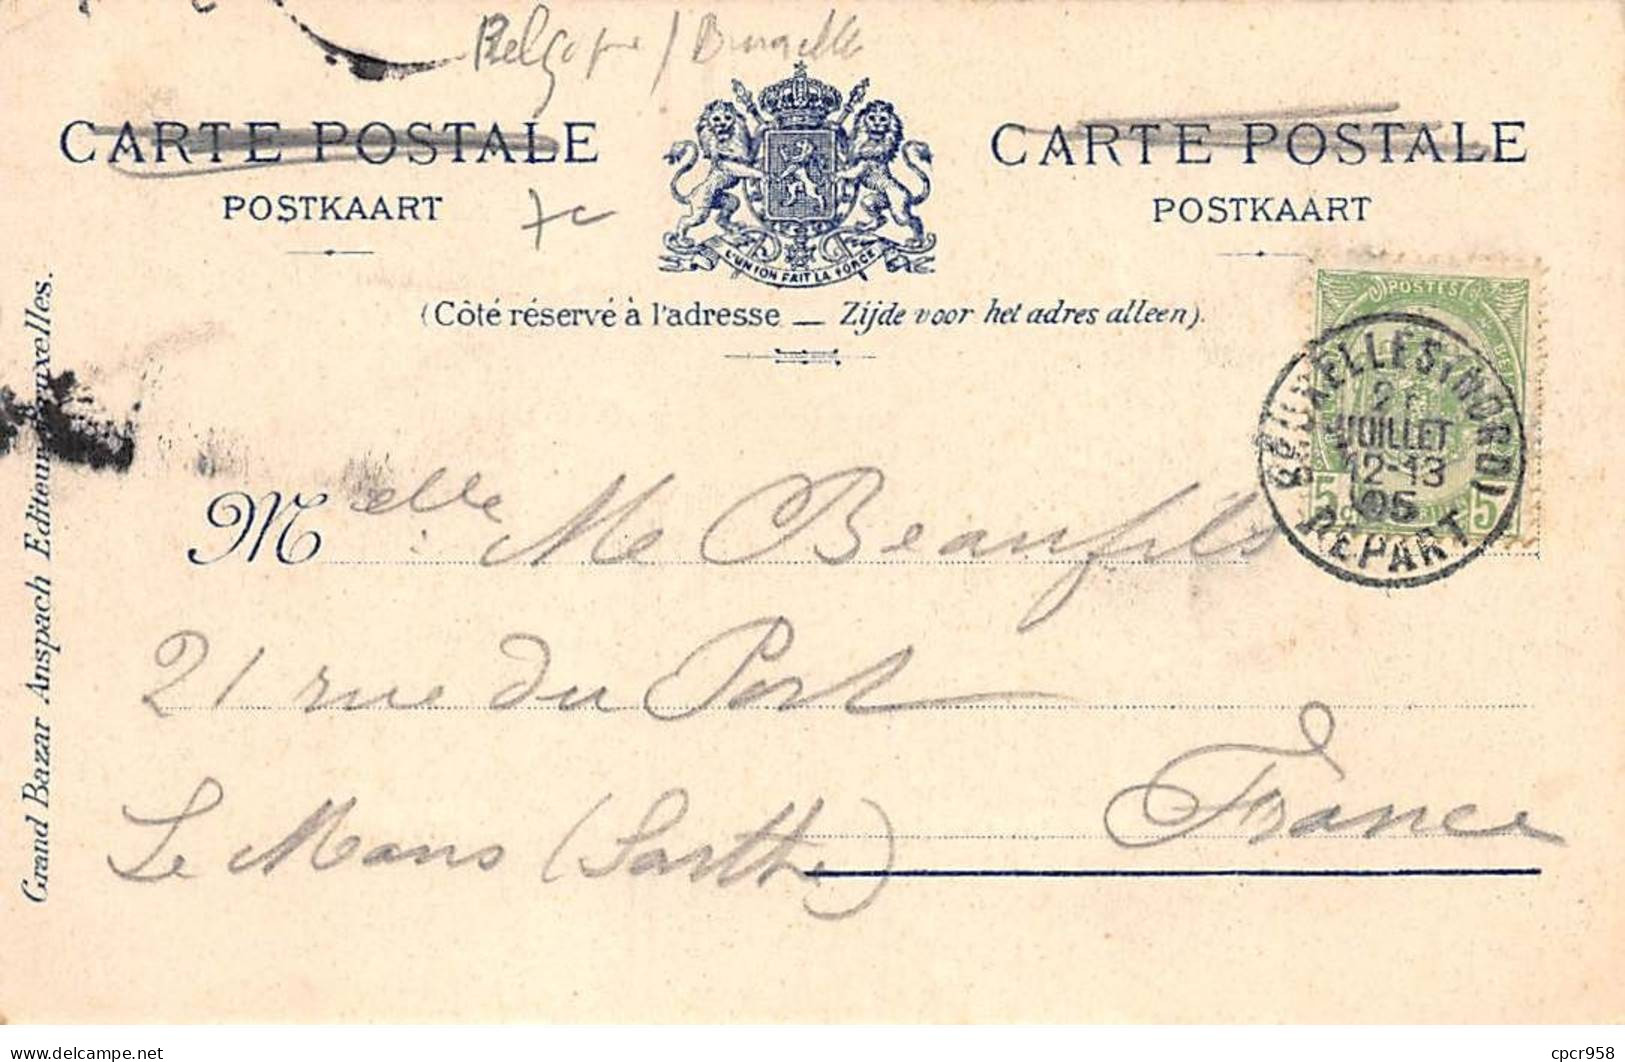 Belgique / Bruxelles
CARTE POSTALE
POSTKAART
L'UNION FAIT LA FORCE
CARTE POSTALE
POSTKAART
(Côté réservé à l'adresse — Zijde voor het adres alleen).
POSTES
5 5
BRUXELLES (NORD)
JUILLET
12-13
05
DEPART
Grand Bazar Anspach Editeur Bruxelles.
Melle Me Beaufils
21 rue du Port
Le Mans (Sarthe)
France
delcampe.net
cpcr958